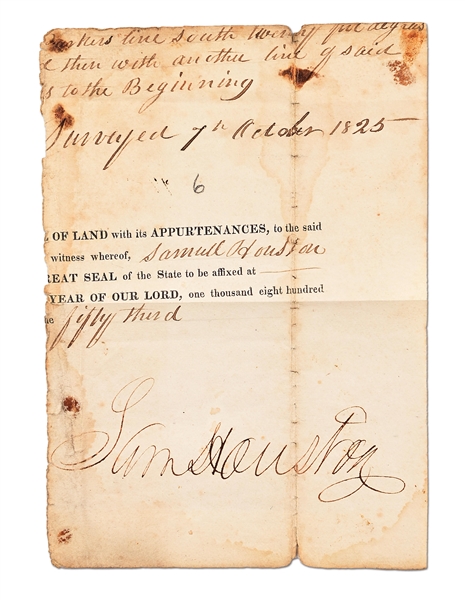 line south twenty five degrees
then with another line of said
s to the Beginning
Surveyed 7th October 1825
6
OF LAND with its APPURTENANCES, to the said
witness whereof, Samuell Houston
REAT SEAL of the State to be affixed at
YEAR OF OUR LORD, one thousand eight hundred
he fifty third
Sam Houston